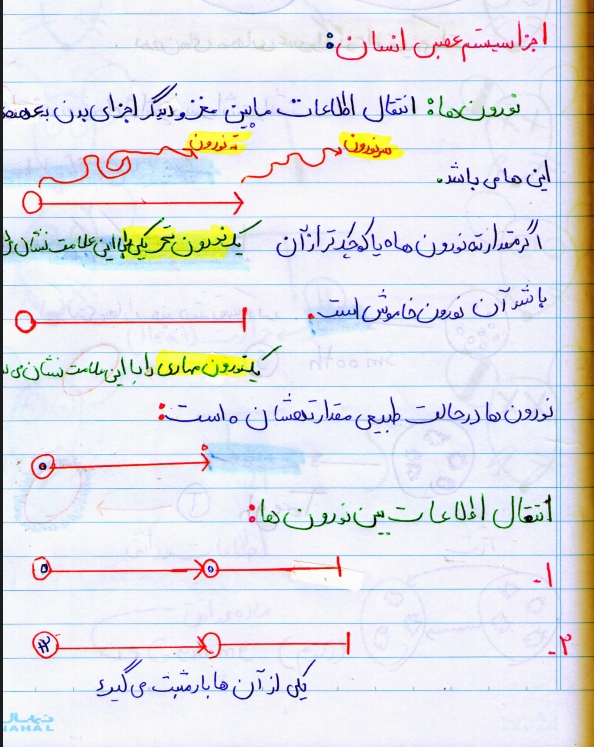 اجزا سیستم عصبی انسان:
نورون ها: انتقال اطلاعات مابین مغز و دیگر اجزای بدن به عهده
ته نورون
سر نورون
این ها می باشد.
اگر مقدار ته نورون ها ۰ یا کوچک تر از آن
یک نورون تحریکی را با این علامت نشان
باشد آن نورون خاموش است.
یک نورون مهاری را با این علامت نشان می
نورون ها در حالت طبیعی مقدار ته شان ۰ است:
۰
۰
انتقال اطلاعات بین نورون ها:
۱-
۰ ۰
۲-
یکی از آن ها بار مثبت می گیرد
نهال
NAHAL